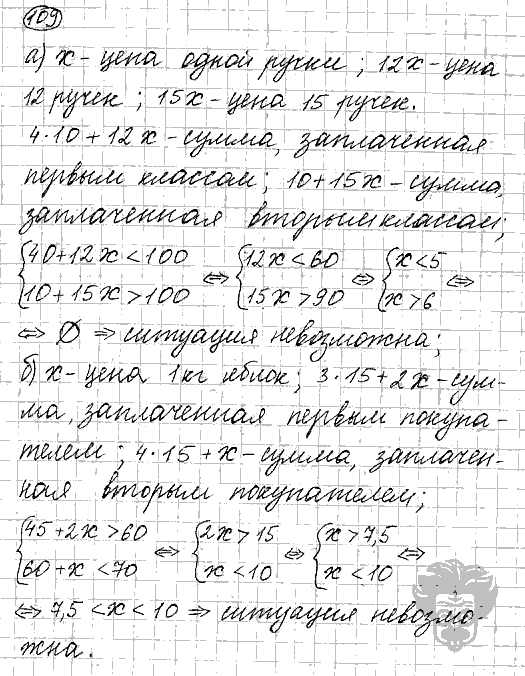 109
а) x – цена одной ручки ; 12x – цена
12 ручек ; 15x – цена 15 ручек.
4·10 + 12x – сумма, заплаченная
первым классом; 10+15x – сумма,
заплаченная вторым классом;
{40+12x<100 ⇔ {12x<60 ⇔ {x<5 ⇔
{10+15x>100 {15x>90 {x>6
⇔ ∅ ⇒ ситуация невозможна;
б) x – цена 1 кг яблок; 3·15+2x – сум-
ма, заплаченная первым покупа-
телем; 4·15+x – сумма, заплачен-
ная вторым покупателем;
{45+2x>60 ⇔ {2x>15 ⇔ {x>7,5 ⇔
{60+x<70 {x<10 {x<10
⇔ 7,5<x<10 ⇒ ситуация невозмо-
жна.